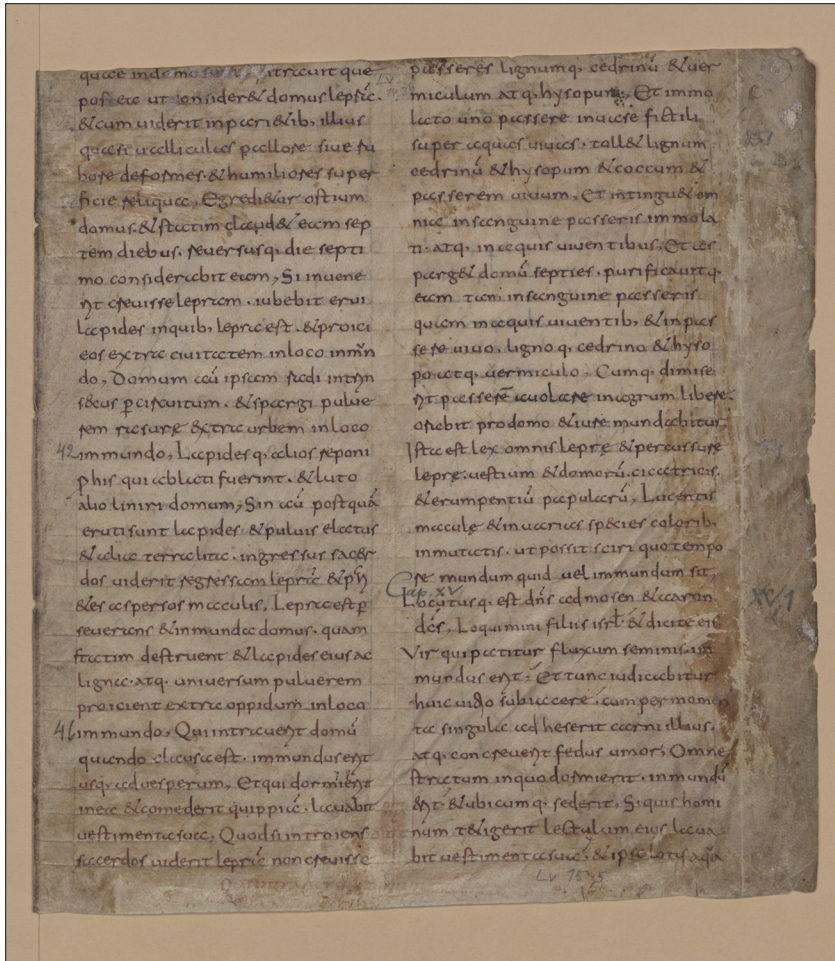 quae in domo
postea ut consideret domus leprā.
&cum uiderit inparietib; illius
quasi ualliculas pallore siue ru
bore deformes. &humiliores super
ficie reliqua, Egredi&ur ostium
domus. &statim claud& eam sep
tem diebus. reuersusq; die septi
mo considerabit eam, Si inuene
rit creuisse lepram. iubebit erui
lapides inquib; lepra est. &proici
eos extra ciuitatem inloco inmun
do, Domum aū ipsam radi intrin
secus p circuitum. &spargi pulue
rem rasurę extra urbem inloco
42 inmundo, Lapidesq; alios reponi
p his qui ablati fuerint. &luto
alio liniri domum, Sin aū postquā
eruti sunt lapides &puluis elatus
&alia terra lita. ingressus sacer
dos uiderit regressam leprā &
&es aspersos maculis, Lepra est p
seuerans &inmunda domus. quam
statim destruent &lapides eius ac
ligna. atq; uniuersum puluerem
proicient extra oppidum inloco
46 immundo, Qui intrauerit domū
quando clausa est. immundus erit
usq; aduesperum, Et qui dormierit
inea &comederit quippiā. lauabit
uestimenta sua, Quod si introiens
sacerdos uiderit leprā non creuisse
passeres lignumq; cedrinū &uer
miculum atq; hysopum; Et immo
lato uno passere inuase fictili
super aquas uiuas. toll& lignum
cedrinū &hysopum &coccum &
passerem uiuum, Et intingu& om
nia insanguine passeris immola
ti. atq; inaquis uiuentibus, Et as
parg& domū septies. purificauitq;
eam tam insanguine passeris
quam inaquis uiuentib; &inpas
sere uiuo. lignoq; cedrino &hyso
po atq; uermiculo, Cumq; dimise
rit passerē auolare inagrum libere.
orabit prodomo &iure mundabitur
Ista est lex omnis leprę &percussurę
leprę. uestium &domorū. cicatricis.
&erumpentiū papularū, Lucentis
maculę &inuarias species colorib;
inmutatis. ut possit sciri quo tempo
re mundum quid uel immundum sit,
Cap. XV
Locutusq; est dn̄s admosen &aaron
dēs, Loquimini filiis isrl̄. &dicite eis
Vir qui patitur fluxum seminis. in
mundus erit, Et tunc iudicabitur
huic uitio subiacere. cum per momen
ta singula adheserit carni illius.
atq; concreuerit fedus umor, Omne
stratum inquo dormierit. inmundū
erit. &ubicumq; sederit, Si quis homi
num t&igerit lectulum eius laua
bit uestimenta sua. &ipse lotus aqua
Lv 15,5